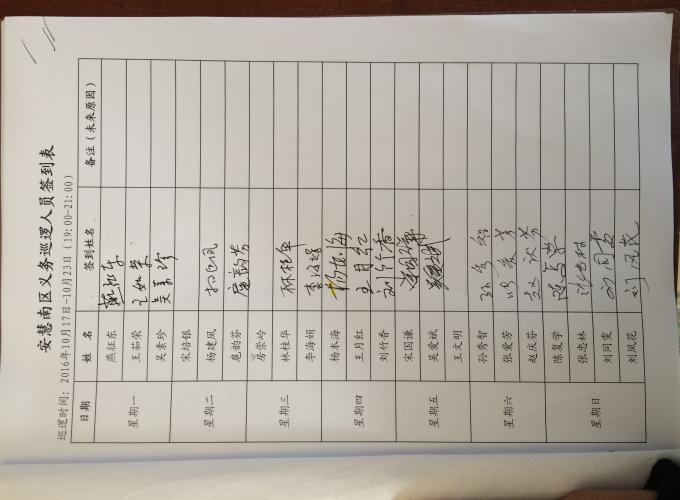 安慧南区义务巡逻人员签到表
巡逻时间：2016年10月17日-10月23日（19:00-21:00）
日期 姓 名 签到姓名 备注（未来原因）
星期一 燕征东 燕征东
王茹荣 王茹荣
吴素珍 吴素珍
星期二 宋培银
杨建凤
扈韵芬 扈韵芬
星期三 房崇岭
林桂华 林桂华
李海娟 李海娟
星期四 杨本海 杨本海
王月红 王月红
刘竹香 刘竹香
星期五 宋国谦
吴爱斌
王文明
星期六 孙秀智 孙秀智
张爱芳
赵庆芬 赵庆芬
星期日 陈复学 陈复学
张忠林
刘同雯
刘凤花 刘凤花